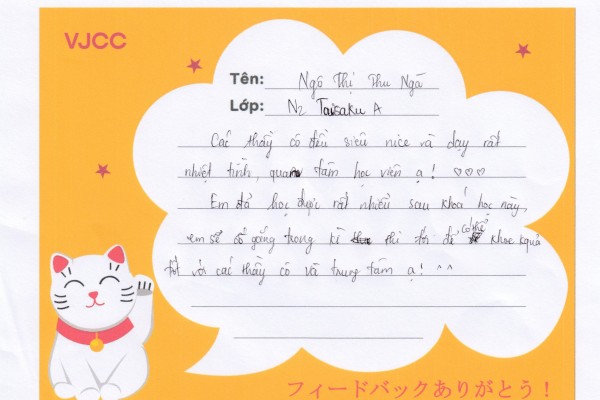 VJCC
Tên: Ngô Thị Thu Ngà
Lớp: N2 Taisaku A
Các thầy cô đều siêu nice và dạy rất
nhiệt tình, quan tâm học viên ạ! ♡♡♡
Em đã học được rất nhiều sau khoá học này,
em sẽ cố gắng trong kì thi tới để có thể khoe kquả
tốt với các thầy cô và trung tâm ạ! ^^
フィードバックありがとう!